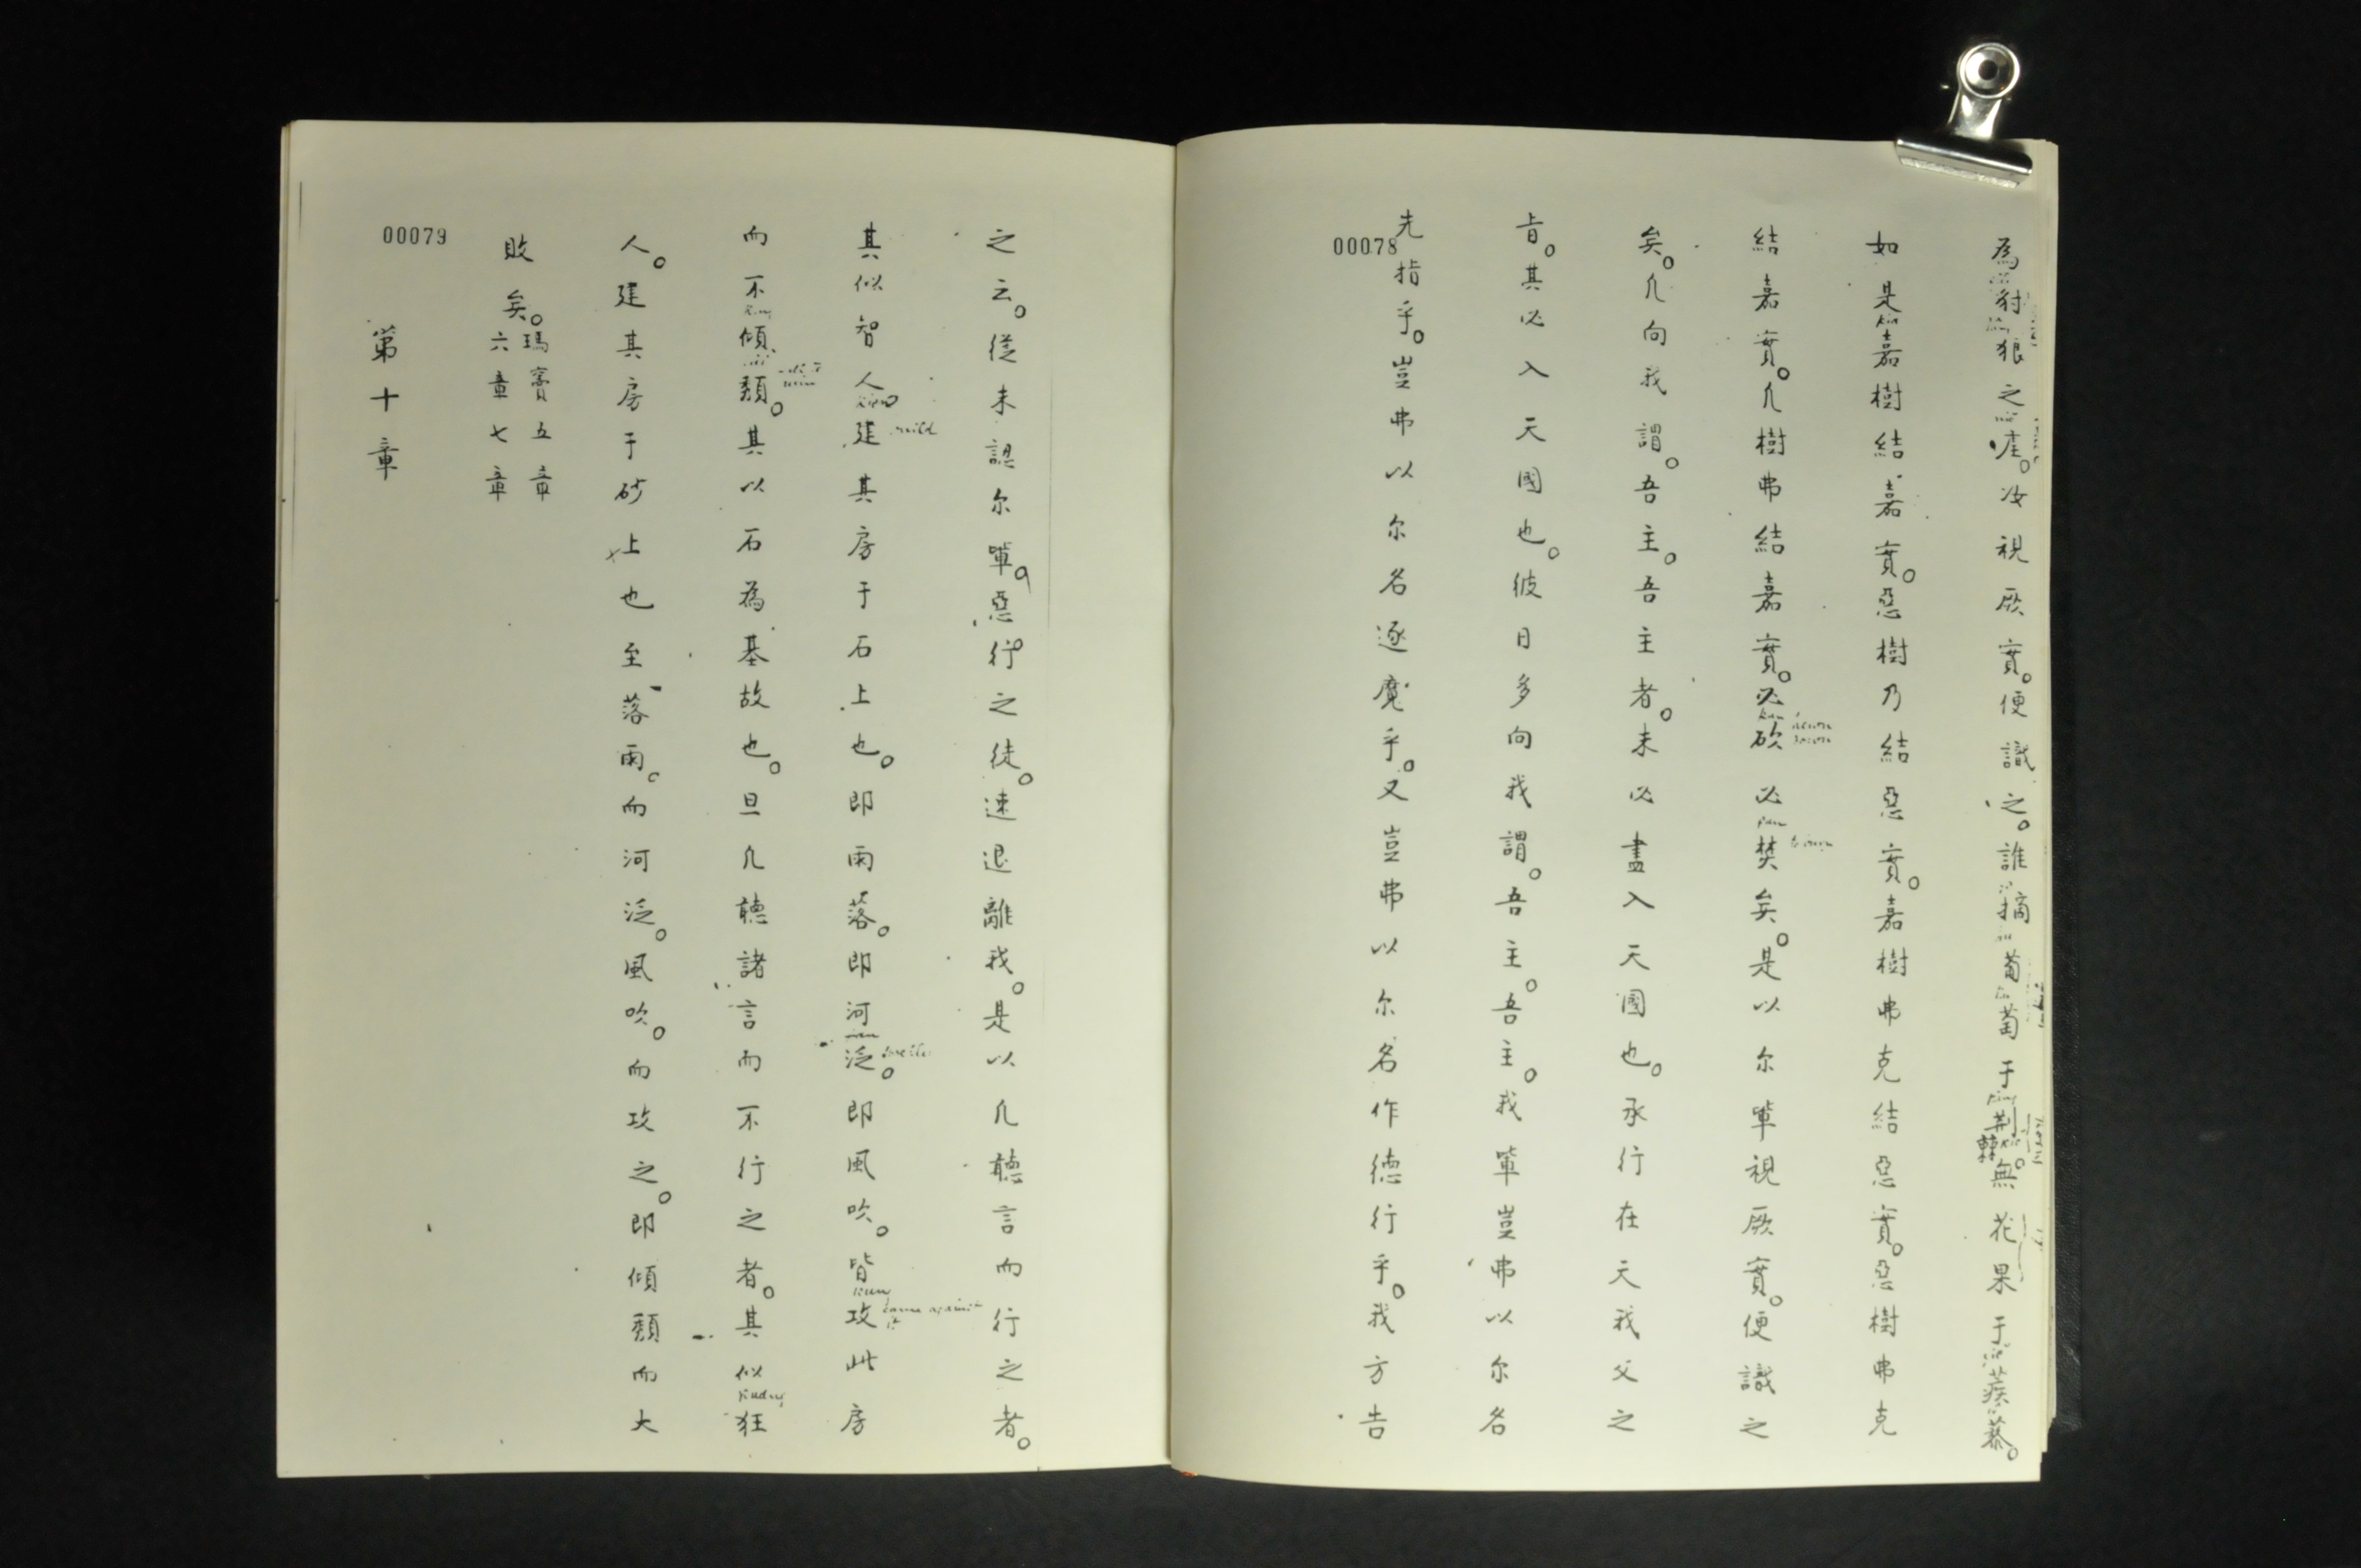 為豺狼之㖞。汝視厥實。便識之。誰摘葡萄于荊棘。無花果于蒺藜。
如是嘉樹結嘉實。惡樹乃結惡實。嘉樹弗克結惡實。惡樹弗克
結嘉實。凢樹弗結嘉實。必砍必焚矣。是以尔軰視厥實。便識之
矣。凢向我謂。吾主。吾主者。未必盡入天國也。承行在天我父之
旨。其必入天國也。彼日多向我謂。吾主。吾主。我軰豈弗以尔名
先指乎。豈弗以尔名逐魔乎。又豈弗以尔名作德行乎。我方告
00078
之云。從未認尔軰。惡行之徒。速退離我。是以凢聽言而行之者。
其似智人。建其房于石上也。即雨落。即河泛。即風吹。皆攻此房
build
came against it
而不傾頹。其以石為基故也。旦凢聽諸言而不行之者。其似狂
人。建其房于砂上也至落雨。而河泛。風吹。而攻之。即傾頹而大
敗矣。瑪竇五章六章七章
第十章
00079